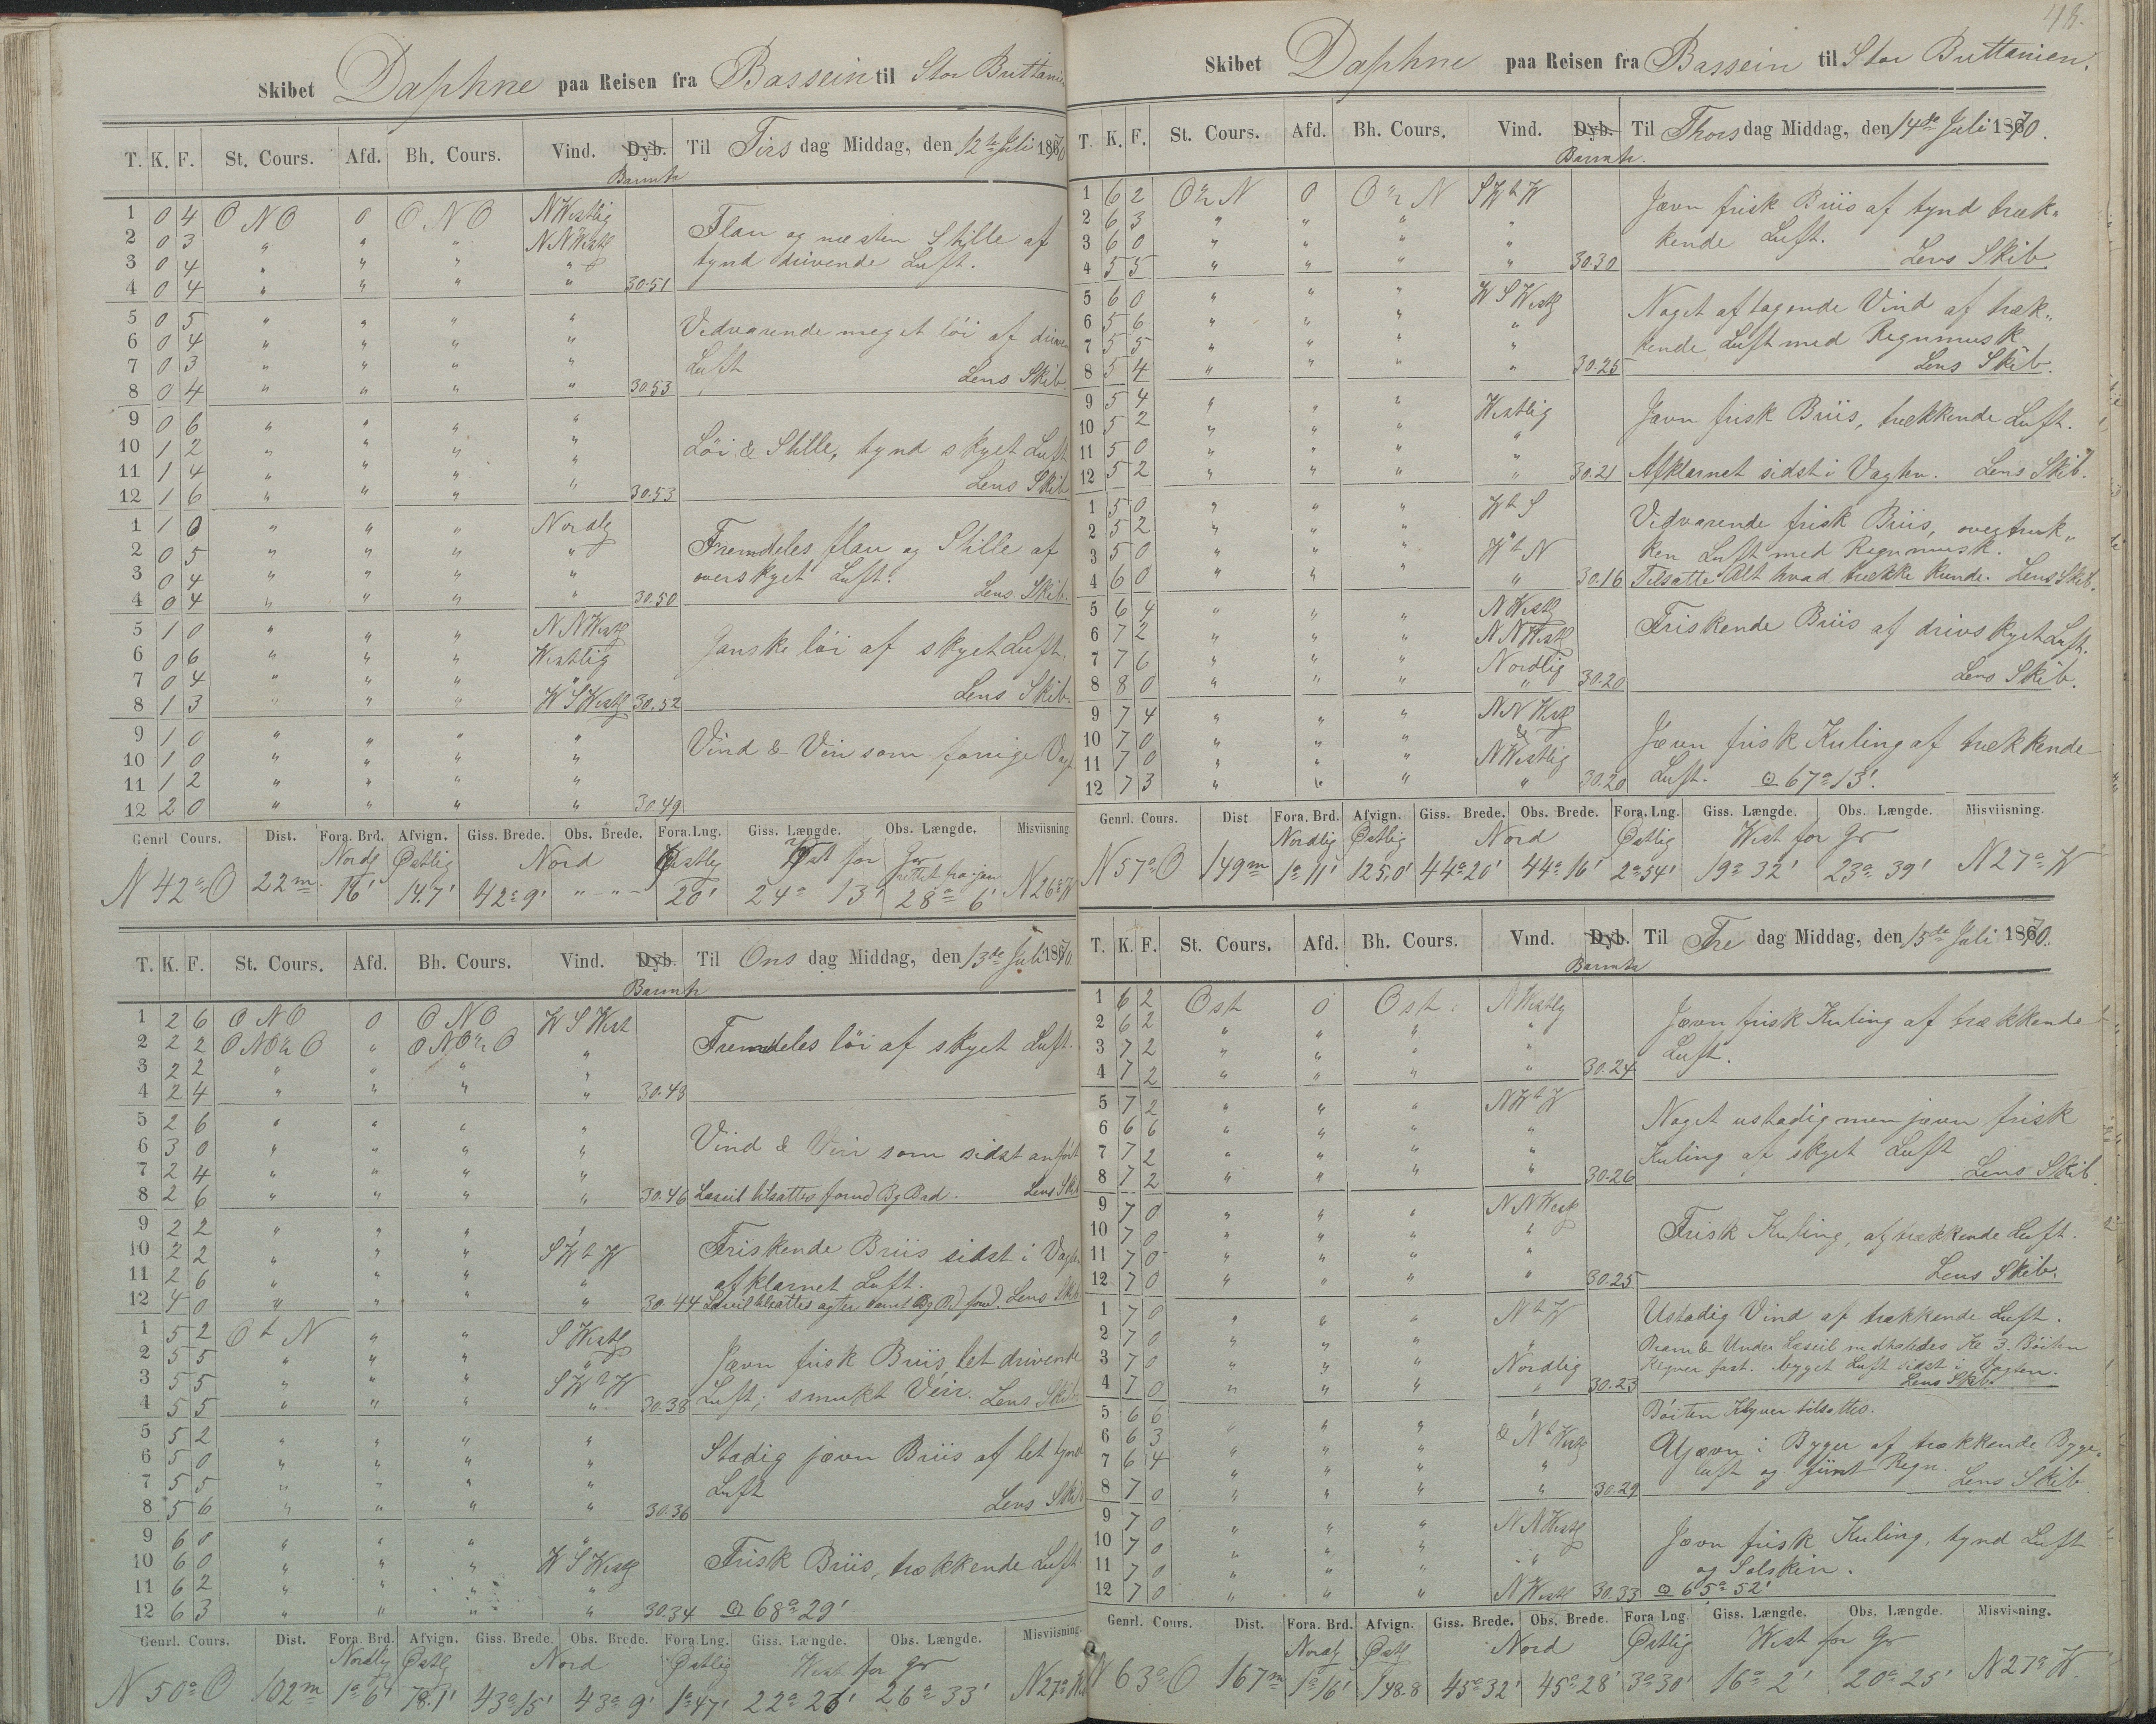 Skibet Daphne paa Reisen fra Bassein til Stor Brittanien
T. K. F. St. Cours. Afd. Bh. Cours. Vind. Dyb. Til Tirsdag Middag, den 12te Juli 1870
Barmtr
1 0 4 O N O 0 O N O NWestlig
2 0 3 " " " NNWestl Flau og næsten Stille af
3 0 4 " " " " tynd drivende Luft.
4 0 4 " " " " 30.51
5 0 5 " " " "
6 0 4 " " " " Vedvarende meget löi af
7 0 3 " " " " Luft
8 0 4 " " " " 30.53 Lens Skib.
9 0 6 " " " "
10 1 2 " " " "
11 1 4 " " " " Löi & Stille, tynd skyet Luft
12 1 6 " " " " 30.53 Lens Skib
1 1 0 " " " Nordlg
2 0 5 " " " " Fremdeles flau og Stille af
3 0 4 " " " " overskyet Luft.
4 0 4 " " " " 30.50 Lens Skib.
5 1 0 " " " NNWestl
6 0 6 " " " Westlig Ganske löi af skyet Luft.
7 0 4 " " " "
8 1 3 " " " WSWestl 30.52 Lens Skib.
9 1 0 " " " "
10 1 0 " " " " Vind & Veir som forrige Vagt
11 1 2 " " " "
12 2 0 " " " " 30.49
Genrl. Cours. Dist. Fora. Brd. Afvign. Giss. Brede. Obs. Brede. Fora. Lng. Giss. Længde. Obs. Længde. Misviisning
Nordl Østlig Nord Østlig Vest for Gr
N 42° O 22m 16' 14.7' 42° 9' " " 20' 24° 13' 28° 6' N 26° W
T. K. F. St. Cours. Afd. Bh. Cours. Vind. Dyb. Til Onsdag Middag, den 13de Juli 1870.
Barmtr
1 2 6 O N O 0 O N O W S West
2 2 2 ONO½O " ONO½O " Fremdeles löi af skyet Luft.
3 2 2 " " " "
4 2 4 " " " " 30.48
5 2 6 " " " "
6 3 0 " " " " Vind & Veir som sidst anfört
7 2 4 " " " "
8 2 6 " " " " 30.46 Læseil tilsattes forud Bg Brd. Lens Skb
9 2 2 " " " "
10 2 2 " " " SWtW Friskende Briis sidst i Vagten
11 2 6 " " " " afklarnet Luft.
12 4 0 " " " " 30.44 Læseil tilsattes agter samt Bg Brd forud. Lens Skib
1 5 2 O t N " " S Westl
2 5 5 " " " " Jævn frisk Briis let drivende
3 5 5 " " " SWtW Luft; smukt Veir. Lens Skib
4 5 5 " " " " 30.38
5 5 2 " " " "
6 5 0 " " " " Stadig jævn Briis af let
7 5 5 " " " " Luft
8 5 6 " " " " 30.36 Lens Skib
9 6 0 " " " "
10 6 0 " " " W S Westl Frisk Briis, trækkende Luft.
11 6 2 " " " "
12 6 3 " " " " 30.34 ☉ 68° 29'
Genrl. Cours. Dist. Fora. Brd. Afvign. Giss. Brede. Obs. Brede. Fora. Lng. Giss. Længde. Obs. Længde. Misviisning.
Nordlig Østl Nord Østlig West for Gr
N 50° O 102m 1° 6' 78.1' 43° 15' 43° 9' 1° 47' 22° 26' 26° 33' N 27° W
48.
Skibet Daphne paa Reisen fra Bassein til Stor Brittanien.
T. K. F. St. Cours. Afd. Bh. Cours. Vind. Dyb. Til Thorsdag Middag, den 14de Juli 1870.
Barmtr.
1 6 2 O½N 0 O½N SWtW Jævn frisk Briis af tynd træk-
2 6 3 " " " " kende Luft.
3 6 0 " " " "
4 5 5 " " " " 30.30 Lens Skib.
5 6 0 " " " W S Westl Noget aftagende Vind af træk-
6 5 6 " " " "
7 5 5 " " " " kende Luft med Regnmusk
8 5 4 " " " " 30.25 Lens Skib.
9 5 4 " " " Westlig Jævn frisk Briis, trækkende Luft.
10 5 2 " " " "
11 5 0 " " " "
12 5 2 " " " " 30.21 Afklarnet sidst i Vagten. Lens Skib.
1 5 0 " " " WtS Vedvarende frisk Briis, overtruk-
2 5 2 " " " " ken Luft med Regnmusk.
3 5 0 " " " WtN
4 6 0 " " " " 30.16 Tilsatte Alt hvad trække kunde. Lens Skib.
5 6 4 " " " N Westl Friskende Briis af drivskyet Luft.
6 7 2 " " " N N Westl
7 7 6 " " " Nordlig
8 8 0 " " " " 30.20 Lens Skib.
9 7 4 " " " N N Westl
10 7 0 " " " & Jævn frisk Kuling af trækkende
11 7 0 " " " N Westlig
12 7 3 " " " " 30.20 Luft. ☉ 67° 13'.
Genrl. Cours. Dist Fora. Brd. Afvign. Giss. Brede. Obs. Brede. Fora. Lng. Giss. Længde. Obs. Længde. Misviisning.
Nordlig Østlig Nord Østlig West for Gr
N 57° O 149m 1° 11' 125,0' 44° 20' 44° 16' 2° 54' 19° 32' 23° 39' N 27° W
T. K. F. St. Cours. Afd. Bh. Cours. Vind. Dyb. Til Fredag Middag, den 15de Juli 1870.
Barmtr
1 6 2 Ost 0 Ost. N Westlig
2 6 2 " " " " Jævn frisk Kuling af trækkende
3 7 2 " " " " Luft.
4 7 2 " " " " 30.24
5 7 2 " " " NWtW Noget ustadig men jævn frisk
6 6 6 " " " "
7 7 2 " " " " Kuling af skyet Luft
8 7 2 " " " " 30.26 Lens Skib.
9 7 0 " " " N N Westl
10 7 0 " " " " Frisk Kuling, af trækkende Luft.
11 7 0 " " " "
12 7 0 " " " " 30.25 Lens Skib.
1 7 0 " " " NtW Ustadig Vind af trækkende Luft.
2 7 0 " " " " Bram & Under Læseil nedhaledes Kl 3. Röiten
3 7 0 " " " Nordlig Klyver fast. byget Luft sidst i Vagten.
4 7 0 " " " " 30.23 Lens Skib.
5 6 6 " " " " Böiten Klyver tilsattes.
6 6 3 " " " & NtWestl Ujævn i Byger af trækkende Byge-
7 6 4 " " " " luft og fiint Regn.
8 7 0 " " " " 30.29 Lens Skib
9 7 0 " " " N N Westl
10 7 0 " " " " Jævn frisk Kuling, tynd Luft
11 7 0 " " " " og Solskin.
12 7 0 " " " N Westl 30.33 ☉ 65° 52'
Genrl. Cours. Dist. Fora. Brd. Afvign. Giss. Brede. Obs. Brede. Fora Lng. Giss. Længde. Obs. Længde. Misvisning.
Nordl Østl Nord Østlig West for Gr
N 63° O 167m 1° 16' 148.8 45° 32' 45° 28' 3° 30' 16° 2' 20° 25' N 27° W.